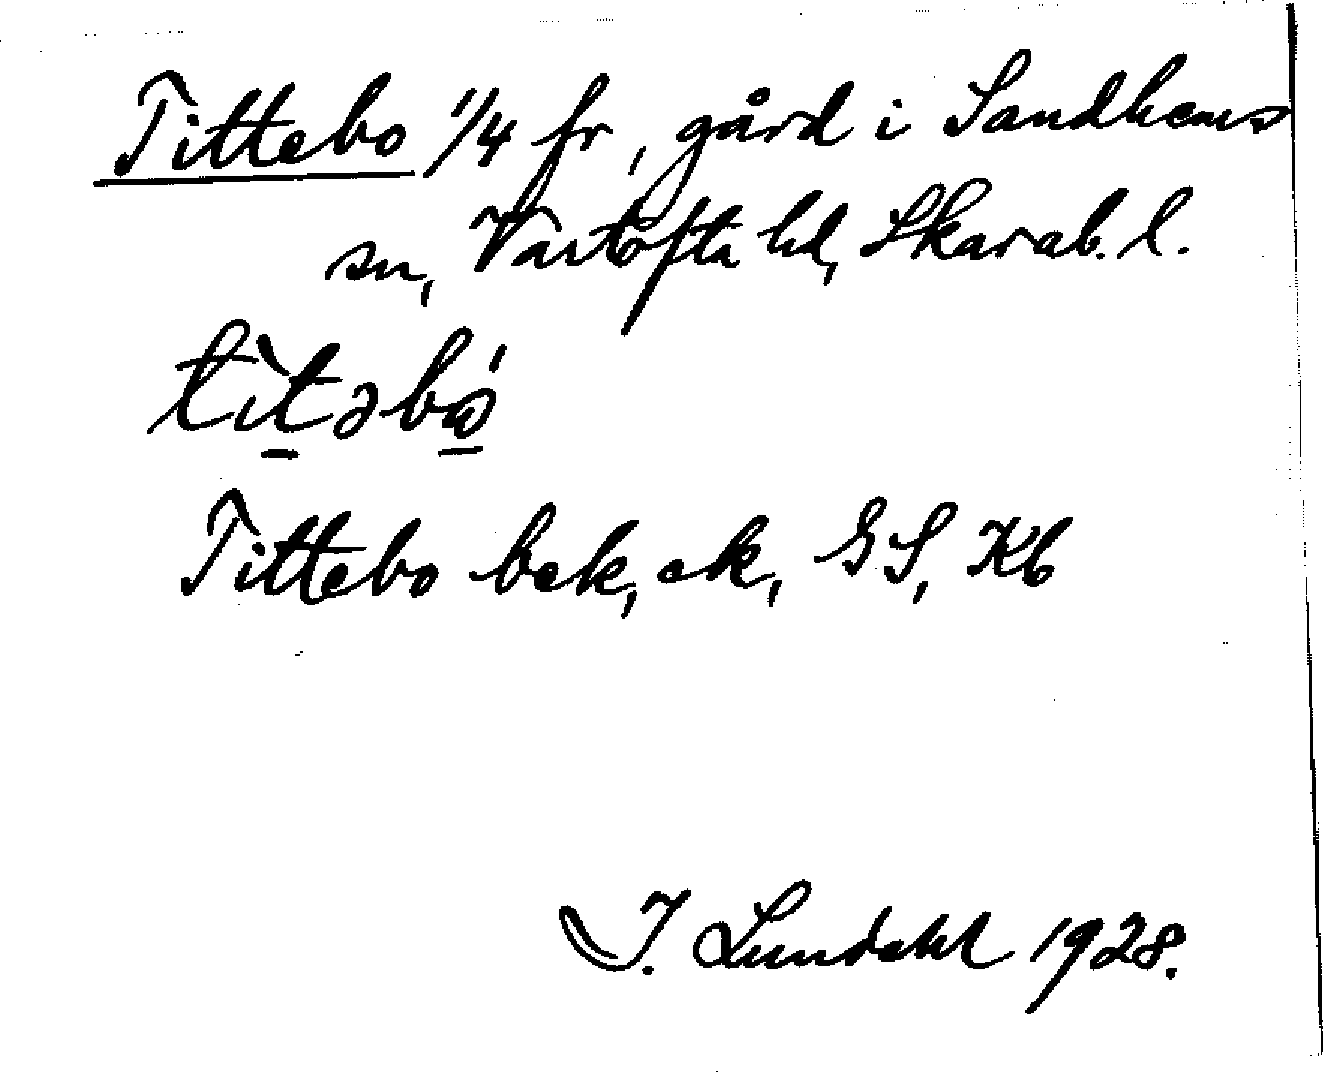 Tittebo 1/4 fr, gård i Sandhems
sn, Vartofta hd, Skarab. l.
tìtəbó
Tittebo bek, ek, GS, Kb
I. Lundahl 1928.